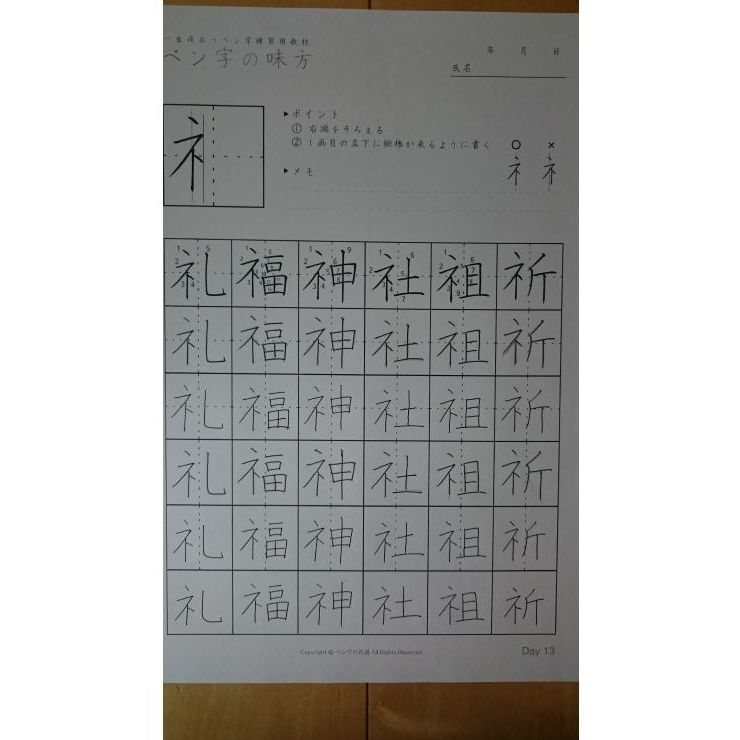 一生役立つペン字練習用教材
ペン字の味方
年 月 日
氏名
▶ポイント
① 右端をそろえる
② 1画目の真下に縦棒が来るように書く
○ ×
▶メモ
礻 礻
礻
礼 福 神 社 祖 祈
礼 福 神 社 祖 祈
礼 福 神 社 祖 祈
礼 福 神 社 祖 祈
礼 福 神 社 祖 祈
礼 福 神 社 祖 祈
Copyright @ ペン字の花道 All Rights Reserved.
Day 13